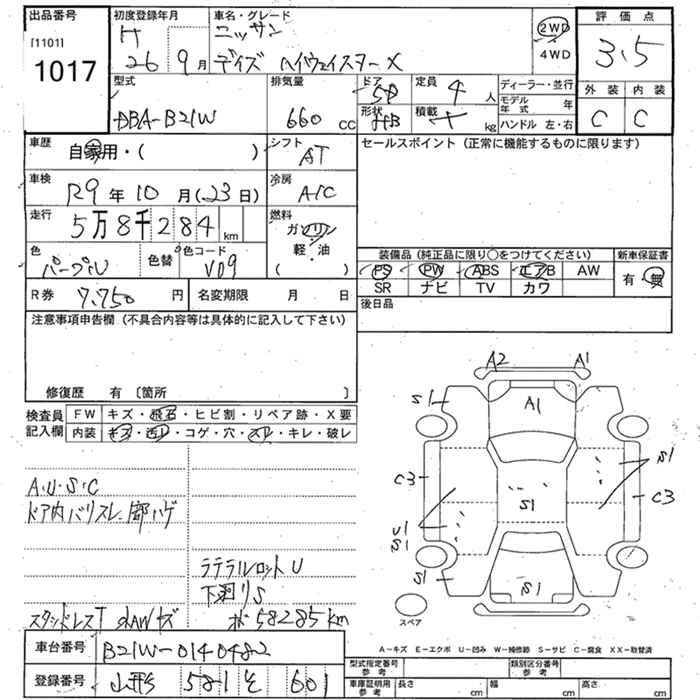 出品番号
[1101]
1017
初度登録年月
H
26 9月
車名・グレード
ニッサン
デイズ ハイウェイスターX
2WD
4WD
評価点
3.5
外装 内装
C C
型式
DBA-B21W
排気量
660 cc
ドア
5D
形状
定員
4 人
積載
kg
ディーラー・並行
モデル年式 年
ハンドル 左・右
車歴
自家用・( )
シフト
AT
セールスポイント (正常に機能するものに限ります)
車検
R9年10月(23日)
冷房
A/C
走行
5万8千284km
燃料
ガソリン
軽・油
( )
色
パープル
色替
色コード
V09
装備品 (純正品に限り○をつけてください)
PS PW ABS エアB AW
SR ナビ TV カワ
新車保証書
有・無
R券 7,750円
名変期限 月 日
後日品
注意事項申告欄 (不具合内容等は具体的に記入して下さい)
修復歴 有 〔箇所 〕
検査員
記入欄
FW キズ・飛石・ヒビ割・リペア跡・X要
内装 キズ・汚レ・コゲ・穴・スレ・キレ・破レ
A・U・S・C
ドア内バリスレ、部ハゲ
ラテラルロットU
下廻りS
スタッドレスT
ホ58285km
A2 A1
S1
A1
C3
S1
S1
C3
U1
S1
S1
S1
スペア
A-キズ E-エクボ U-凹み W-補修跡 S-サビ C-腐食 XX-取替済
車台番号 B21W-0140482
登録番号 山形 581 そ 601
型式指定番号
参考
類別区分番号
参考
車庫証明用
参考
長さ cm
幅 cm
高さ cm